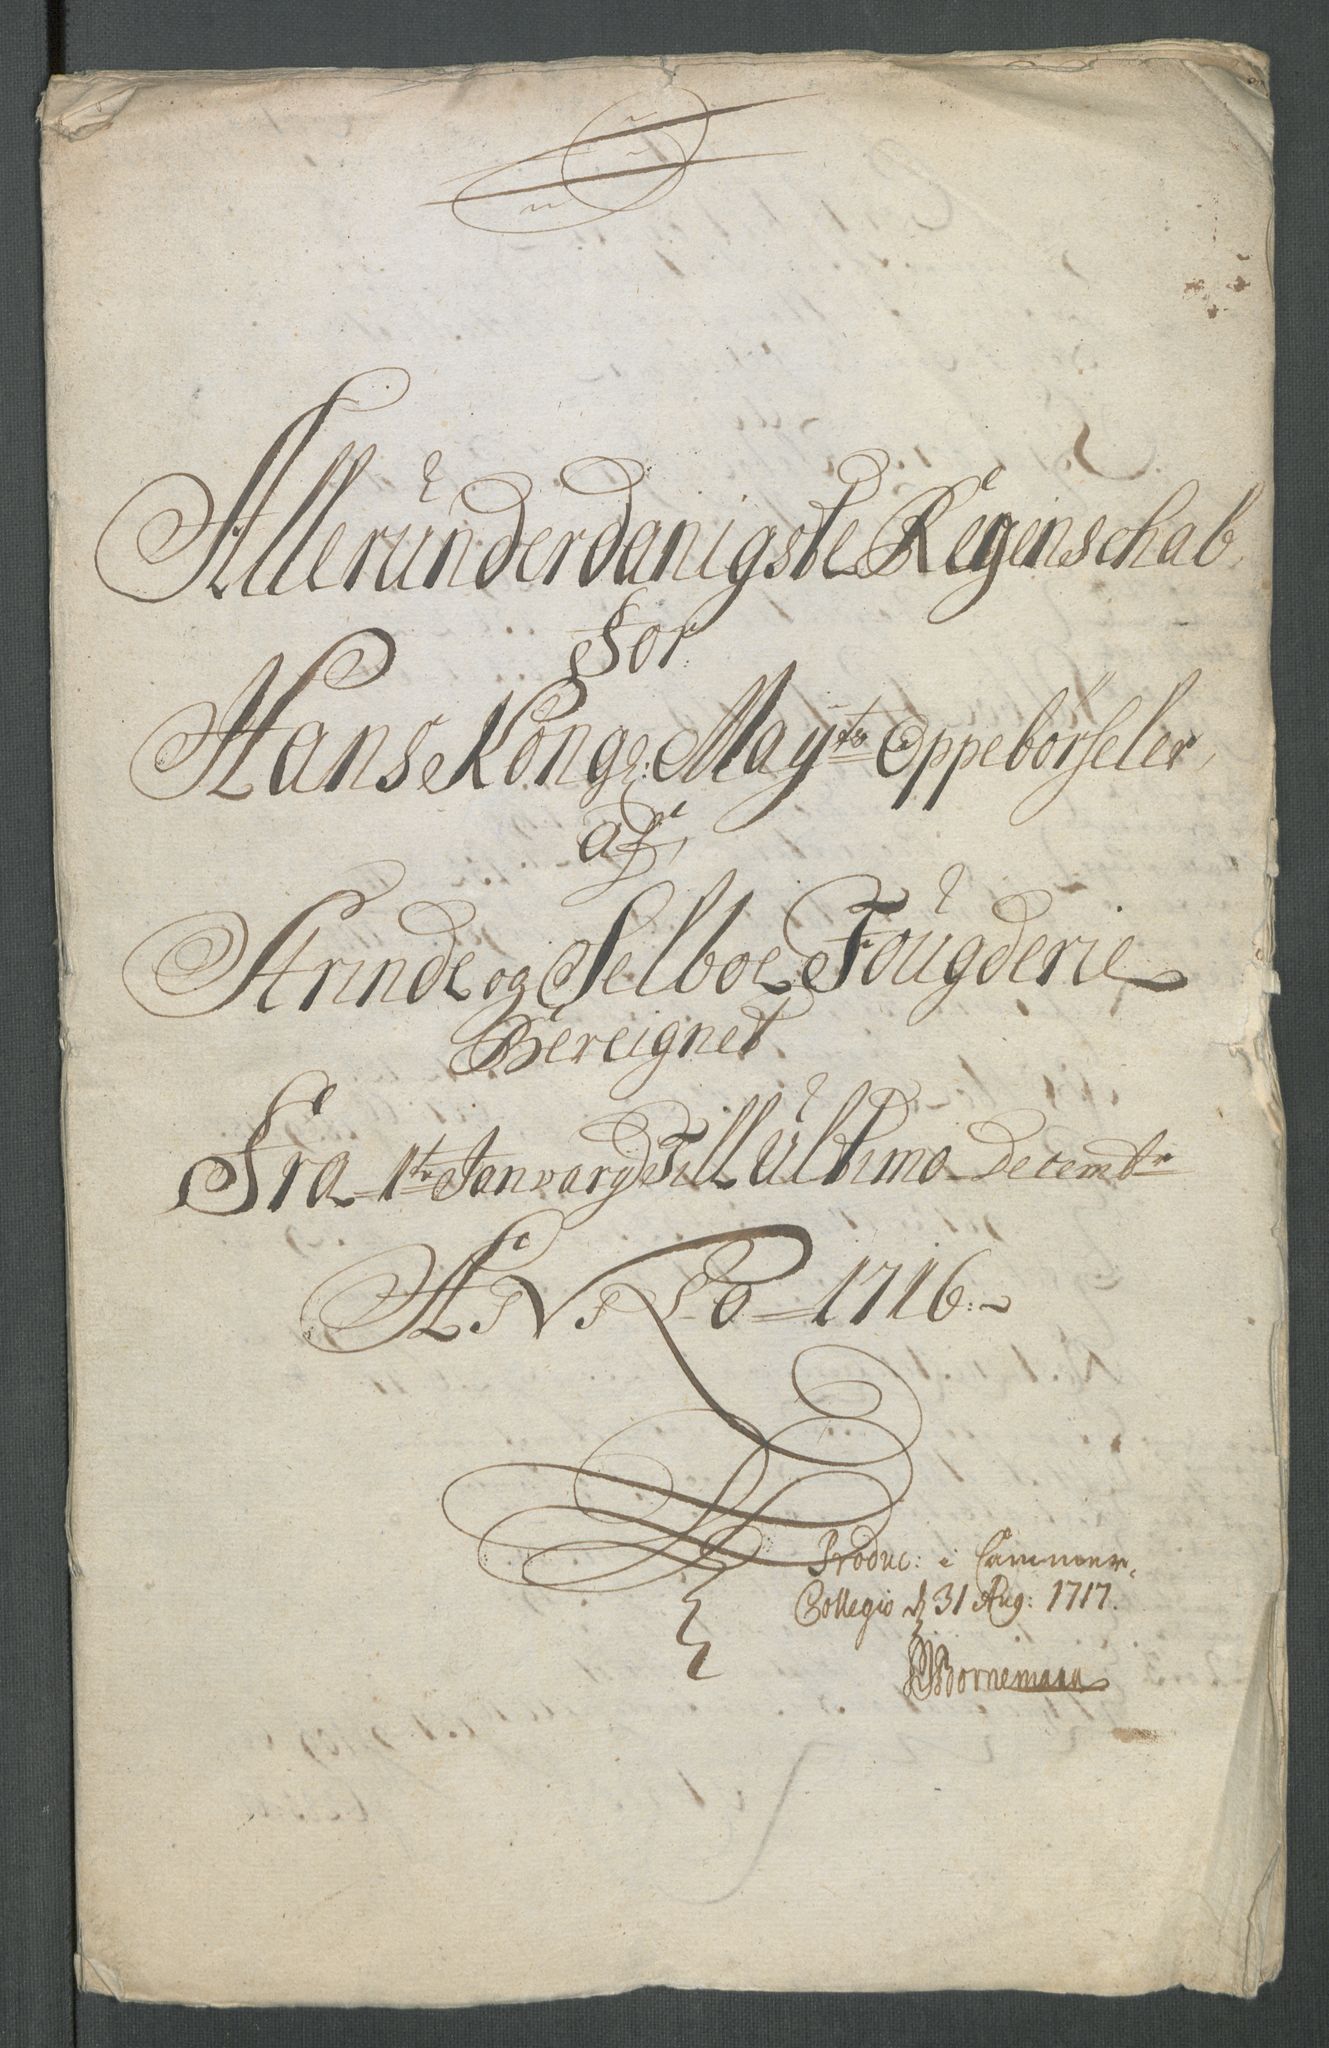 Alleründerdanigste Regenschab
For
Hans Kongl: Mayts Oppebörseler,
af
Strinde og Selboe Foügderie
Bereignet
Fra 1te Janvarÿ Till Ültimo Decembr
ANNO 1716.
Produc: i Cammer
Collegio d 31 Aug: 1717.
Bornemann